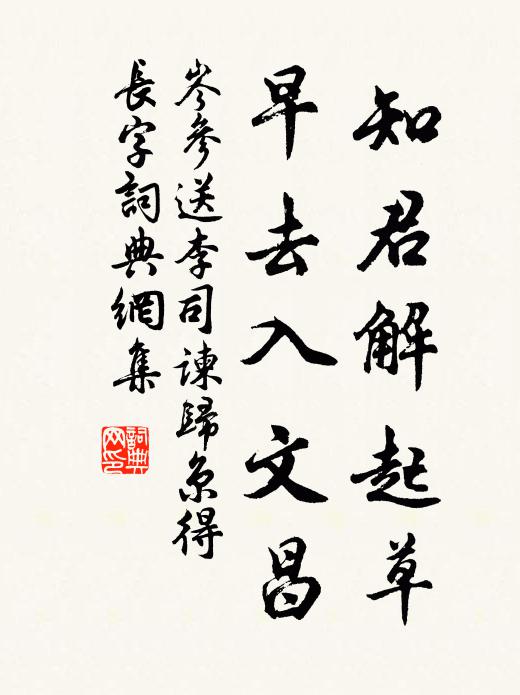 知君解起草
早去入文昌
岑參送李司諫歸京得
長字詞典網集
詞典网印